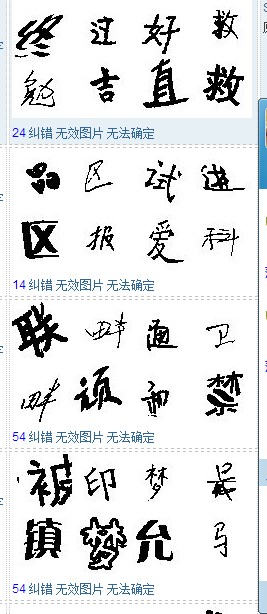 终 过 好 救
勉 吉 直 救
24 纠错 无效图片 无法确定
品 区 试 进
区 报 爱 科
14 纠错 无效图片 无法确定
联 畔 通 卫
畔 顽 和 禁
54 纠错 无效图片 无法确定
被 印 梦 最
镇 梦 允 马
54 纠错 无效图片 无法确定